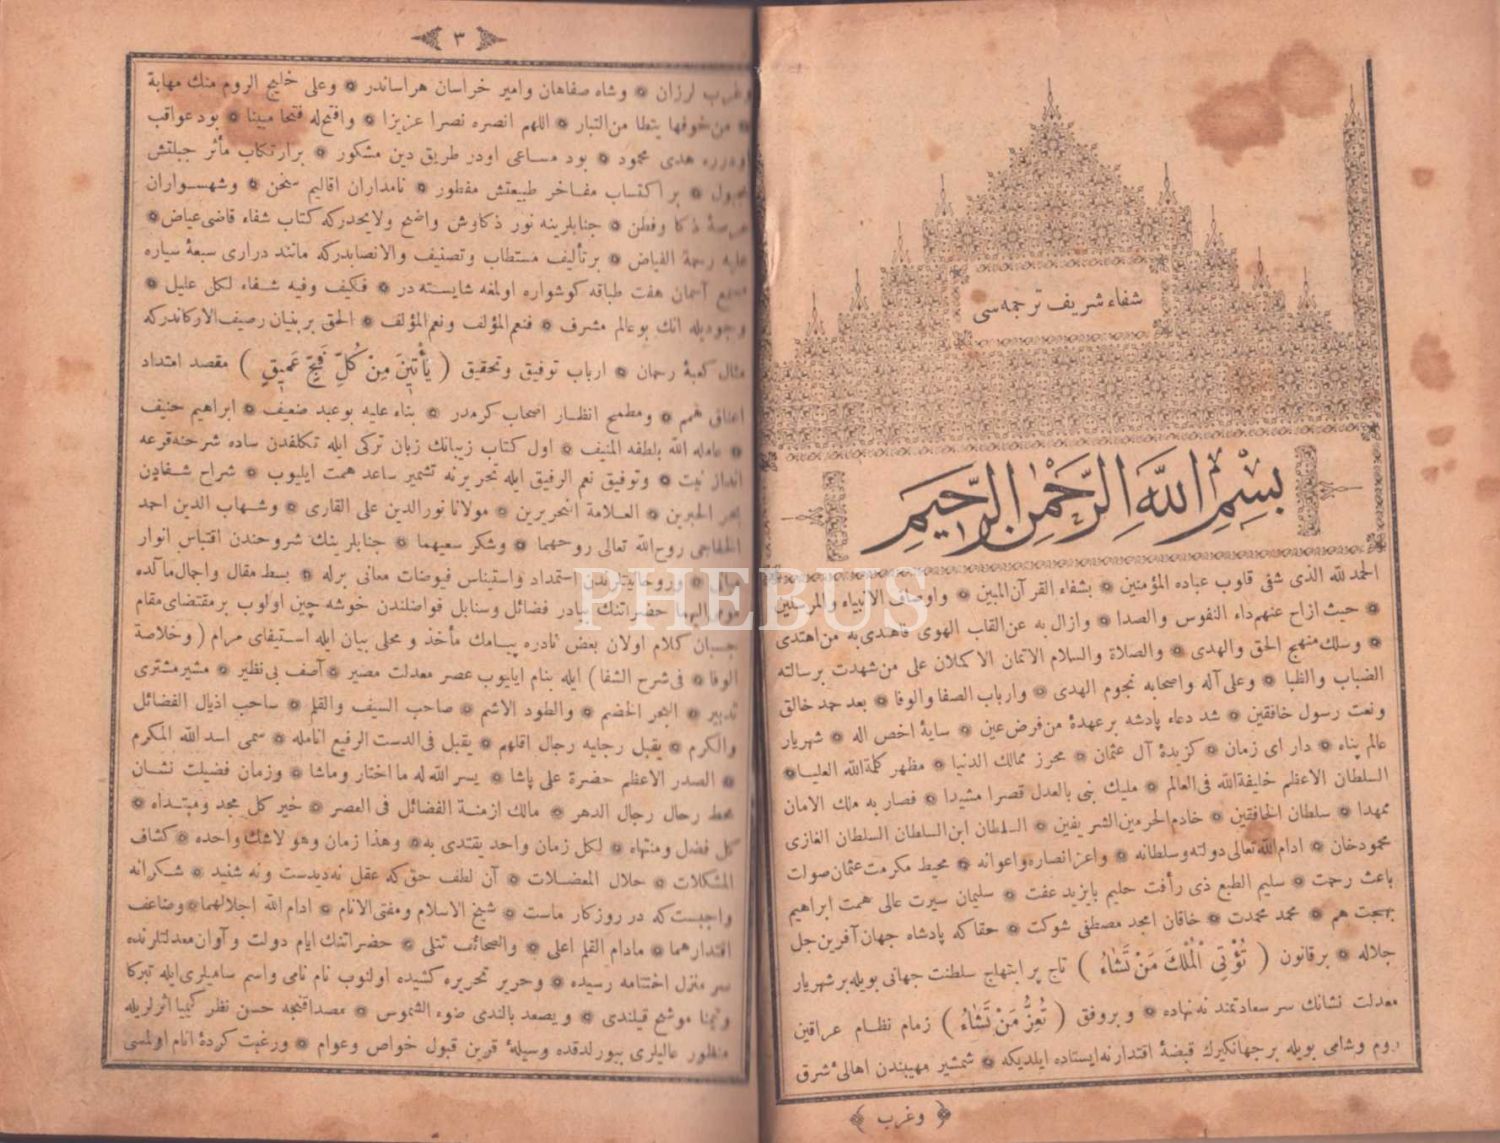 شفاء شريف ترجمه‌سى
بِسْمِ اللّٰهِ الرَّحْمٰنِ الرَّحِيمِ
الحمد لله الذى شفى قلوب عباده المؤمنين ❁ بشفاء القرآن المبين ❁ واوصاف الانبياء والمرسلين
❁ حيث ازاح عنهم داء النفوس والصدا ❁ وازال به عن القلب الهوى فاهدى به من اهتدى
❁ وسلك منهج الحق والهدى ❁ والصلاة والسلام الاتمان الاكملان على من شهدت برسالته
الضباب والظبا ❁ وعلى آله واصحابه نجوم الهدى ❁ وارباب الصفا والوفا ❁ بعد حمد خالق
ونعت رسول خافقين ❁ شد دعاء پادشه بر عهدۀ من فرض عين ❁ سايۀ اخص اله ❁ شهريار
عالم پناه ❁ دار اى زمان ❁ كزيدۀ آل عثمان ❁ محرز ممالك الدنيا ❁ مظهر كلمة الله العليا ❁
السلطان الاعظم خليفة الله فى العالم ❁ مليك بنى بالعدل قصرا مشيدا ❁ فصار به ملك الامان
ممهدا ❁ سلطان الخافقين ❁ خادم الحرمين الشريفين ❁ السلطان ابن السلطان السلطان الغازى
محمود خان ❁ ادام الله تعالى دولته وسلطانه ❁ واعز انصاره واعوانه ❁ محيط مكرمت عثمان صولت
باعث رحمت ❁ سليم الطبع ذى رأفت حليم بايزيد عفت ❁ سليمان سيرت عالى همت ابراهيم
بهجت هم ❁ محمد محمدت ❁ خاقان امجد مصطفى شوكت ❁ حقا كه پادشاه جهان آفرين جل
جلاله ❁ بر قانون ( تُؤْتِى الْمُلْكَ مَنْ تَشَاءُ ) تاج پر ابتهاج سلطنت جهانى بويله بر شهريار
معدلت نشانك سر سعادتمند نه نهاده ❁ و بروفق ( تُعِزُّ مَنْ تَشَاءُ ) زمام نظام عراقين
روم وشامى بويله بر جهانكيرك قبضۀ اقتدارنه ايستاده ايلديكه ❁ شمشير مهيبندن اهالئ شرق
وغرب
٣
وغرب لرزان ❁ وشاه صفاهان وامير خراسان هراساندر ❁ وعلى خليج الروم منك مهابة
❁ من خوفها يتطا من التيار ❁ اللهم انصره نصرا عزيزا ❁ وافتح له فتحا مبينا ❁ بود عواقب
هدى محمود ❁ بود مساعى اودر طريق دين مشكور ❁ برارتكاب مأثر جبلتش
مجبول ❁ بر اكتساب مفاخر طبيعتش مفطور ❁ نامداران اقاليم سخن ❁ وشهسواران
عرصۀ ذكا وفطن ❁ جنابلرينه نور ذكاوش واضح ولايحدركه كتاب شفاء قاضى عياض ❁
عليه رحمة الفياض ❁ بر تأليف مستطاب وتصنيف والانصابدركه مانند درارى سبعۀ سياره
آسمان هفت طباقه كوشواره اولمغه شايسته در ❁ فكيف وفيه شفاء لكل عليل ❁
وجوديله انك بو عالم مشرف ❁ فنعم المؤلف ونعم المؤلف ❁ الحق بر بنيان رصيف الاركاندركه
مثال كعبۀ رحمان ❁ ارباب توفيق وتحقيق ( يَأْتِينَ مِنْ كُلِّ فَجٍّ عَمِيقٍ ) مقصد امتداد
اعناق همم ❁ ومطمح انظار اصحاب كرمدر ❁ بناء عليه بو عبد ضعيف ❁ ابراهيم حنيف
❁ عامله الله بلطفه المنيف ❁ اول كتاب زيبانك زبان تركى ايله تكلفدن ساده شرحنه قرعه
انداز نيت ❁ وتوفيق نعم الرفيق ايله تحريرنه تشمير ساعد همت ايليوب ❁ شراح شفادن
❁ العلامة النحريرين ❁ مولانا نور الدين على القارى ❁ وشهاب الدين احمد
الخفاجى روح الله تعالى روحهما ❁ وشكر سعيهما ❁ جنابلرينك شروحندن اقتباس انوار
❁ وروحانيتلرندن استمداد واستيناس فيوضات معانى برله ❁ بسط مقال واجمال مآلده
حضراتنك بيادر فضائل وسنابل فواضلندن خوشه چين اولوب بر مقتضاى مقام
چسبان كلام اولان بعض نادره پيامك مأخذ ومحلى بيان ايله استيفاى مرام ( وخلاصة
الوفا ❁ فى شرح الشفا ) ايله بنام ايليوب عصر معدلت مصير ❁ آصف بى نظير ❁ مشير مشترى
تدبير ❁ البحر الخضم ❁ والطود الاشم ❁ صاحب السيف والقلم ❁ ساحب اذيال الفضائل
والكرم ❁ يقبل رجليه رجال اقلهم ❁ يقبل فى الدست الرفيع انامله ❁ سمى اسد الله المكرم
❁ الصدر الاعظم حضرة على پاشا ❁ يسر الله له ما اختار وماشا ❁ وزمان فضيلت نشان
محط رحال رجال الدهر ❁ مالك ازمنة الفضائل فى العصر ❁ خير كل مجد ومبتداه ❁
كل فضل ومنتهاه ❁ لكل زمان واحد يقتدى به ❁ وهذا زمان وهو لا شك واحده ❁ كشاف
المشكلات ❁ حلال المعضلات ❁ آن لطف حق كه عقل نه ديدست ونه شنيد ❁ شكرانه
واجبست كه در روزكار ماست ❁ شيخ الاسلام ومفتى الانام ❁ ادام الله اجلالهما ❁ وضاعف
اقتدارهما ❁ مادام القلم اعلى ❁ والصحائف تتلى ❁ حضراتنك ايام دولت وآوان معدلتلرنده
سر منزل اختتامه رسيده ❁ وحرير تحريره كشيده اولنوب نام نامى واسم ساميلرى ايله تبركا
وتيمنا موشح قيلندى ❁ ويصعد بالندى ضوء الشموس ❁ مصداقنجه حسن نظر كيميا اثرلريله
منظور عاليلرى بيورلدقده وسيلۀ قرين قبول خواص وعوام ❁ ورغبت كردۀ انام اولمسى
PHEBUS